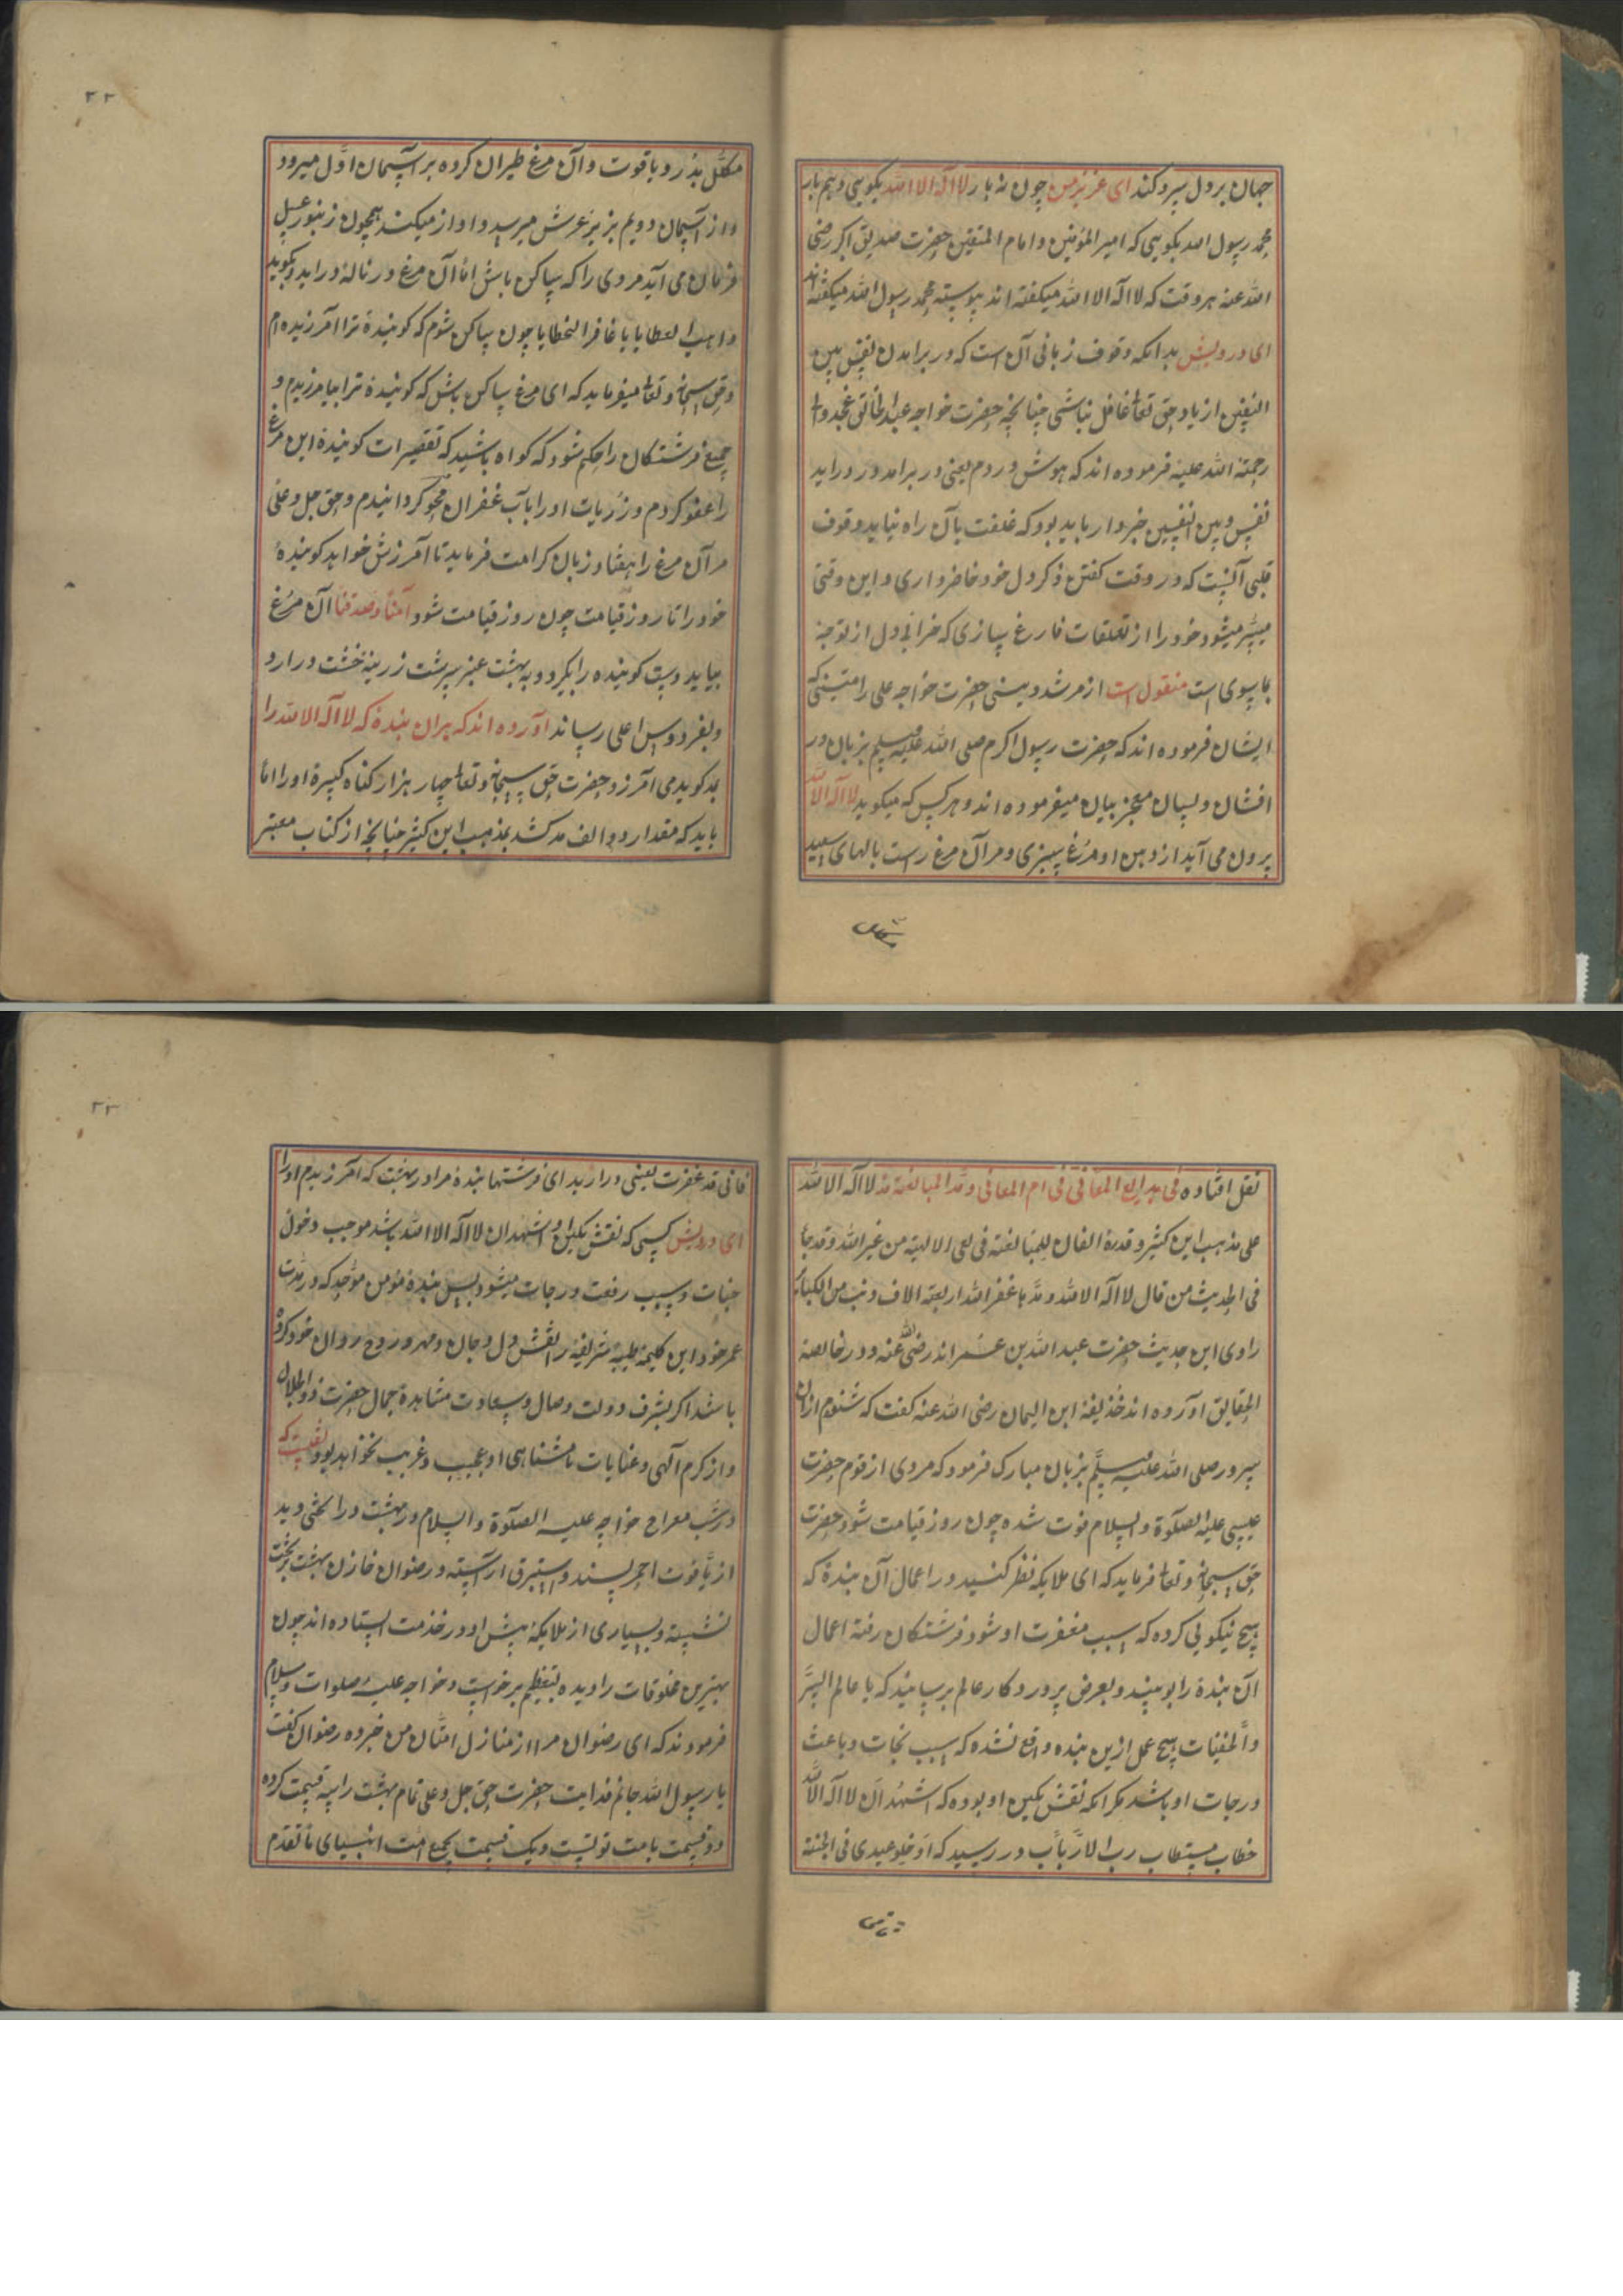 جهان برون سپر و کند ای عزیز من چون نه بار لا اله الا الله بکویی و دهم بار
محمد رسول الله بکویی که امیر المؤمنین و امام المتقین حضرت صدیق اکبر رضی
الله عنه هر وقت که لا اله الا الله میکفته اند پیوسته محمد رسول الله میکفته اند
ای درویش بدانکه وقوف زبانی آن است که در برامدن نفس بین
النفسین از یاد حق تعالی غافل نباشی چنانچه حضرت خواجه عبد الخالق غجدوانی
رحمة الله علیه فرموده اند که هوش در دم یعنی در برامد و در وراید
نفس و بین النفسین خبردار باید بود که غلفت بآن راه نیاید وقوف
قلبی آنست که در وقت کفتن ذکر دل خود حاضر داری و این وقتی
میسر میشود خود را از تعلقات فارغ سازی که خرابی دل از توجه
بماسوی است منقول است از مرشد دینی حضرت خواجه علی رامتینی که
ایشان فرموده اند که حضرت رسول اکرم صلی الله علیه وسلم بزبان در
افشان و لسان معجز بیان میفرموده اند و هرکس که میکوید لا اله الا الله
برون می آید از دهن او مرغ سبزی و مر آن مرغ راست بالهای سپید
مکلل بدر و یاقوت و آن مرغ طیران کرده بر آسمان اول میرود
و از آسمان دویم بزیر عرش میرسد و اواز میکند همچون زنبور عسل
فرمان می آید مروی را که ساکن باش اما آن مرغ در ناله در اید و بکوید
واهب العطایا یا غافر الخطایا چون ساکن شوم که کوینده ترا آمرزیده ام
و حق سبحانه و تعالی میفرماید که ای مرغ ساکن باش که کوینده ترا بیامرزیدم و
جمیع فرشتکان را حکم شود که کواه باشید که تقصیرات کوینده این مرغ
را عفو کردم و زریات او را بآب غفران محو کردانیدم و حق جل و علی
مر آن مرغ را هفتاد زبان کرامت فرماید تا آمرزش خواهد کوینده
خود را تا روز قیامت چون روز قیامت شود آمنا و صدقنا آن مرغ
بیاید و دست کوینده را بکرد و به بهشت عنبر سرشت زرینه خشت در ارد
و بفردوس اعلی رساند آورده اند که هران بنده که لا اله الا الله را
بد کوید می آمرزد حضرت حق سبحانه و تعالی چهار هزار کناه کبیره او را اما
باید که مقدار دو الف مد کشد بمذهب ابن کثیر چنانچه از کتاب معتبر
نقل افتاده فی بدایع المعانی فی ام المعانی و مد المبالغة مد لا اله الا الله
علی مذهب ابن کثیر و قدره الفان للمبالغة فی نفی الالهیة من غیر الله و قد جا
فی الحدیث من قال لا اله الا الله و مدها غفر الله اربعة الاف ذنب من الکبائر
راوی این حدیث حضرت عبد الله بن عمر اند رضی الله عنه و در خالصة
الحقایق آورده اند حذیفه ابن الیمان رضی الله عنه کفت که شنودم از ان
سرور صلی الله علیه وسلم بزبان مبارک فرمود که مردی از قوم حضرت
عیسی علیه الصلوة والسلام فوت شده چون روز قیامت شود حضرت
حق سبحانه و تعالی فرماید که ای ملایکه نظر کنید در اعمال آن بنده که
هیچ نیکویی کرده که سبب مغفرت او شود فرشتکان رفته اعمال
آن بنده را بوینند و بعرض پروردکار عالم برسانید که یا عالم السر
والخفیات هیچ عمل ازین بنده واقع نشده که سبب نجات و باعث
درجات او باشد مکر انکه نقش نکین او بوده که اشهد ان لا اله الا الله
خطاب مستطاب رب الارباب در رسید که ادخلو عبدی فی الجنة
فانی قد غفرت یعنی در ارید ای فرشتها بنده مرا در بهشت که آمرزیدم او را
ای درویش کسی که نقش نکین او اشهد ان لا اله الا الله باشد موجب دخول
جنات و سبب رفعت درجات میشود پس بنده مؤمن موحد که در مدت
عمر خود این کلیمه طیبه شریفه را نقش دل و جان و مهر و روح روان خود کرده
باشد اکر بشرف دولت وصال و سعادت مشاهده جمال حضرت ذو الجلال
و از کرم آلهی و عنایات نامتناهی او عجیب و غریب نخواهد بود نقلست که
در شب معراج خواجه علیه الصلوة والسلام در بهشت در ا تختی دید
از یاقوت احمر بسندو استبرق ارآسته و رضوان خازن بهشت بر تخت
نشسته و بسیاری از ملایکه پیش او در خذمت ایستاده اند چون
بهترین مخلوقات را دیده بتعظیم برخواست و خواجه علیه صلوات و سلام
فرمودند که ای رضوان مرا از منازل امتان من خبر ده رضوان کفت
یا رسول الله جانم فدایت حضرت حق جل و علی تمام بهشت را سه قسمت کرده
دو قسمت بامت توست و یک قسمت بجمیع امت انبیای ما تقدم